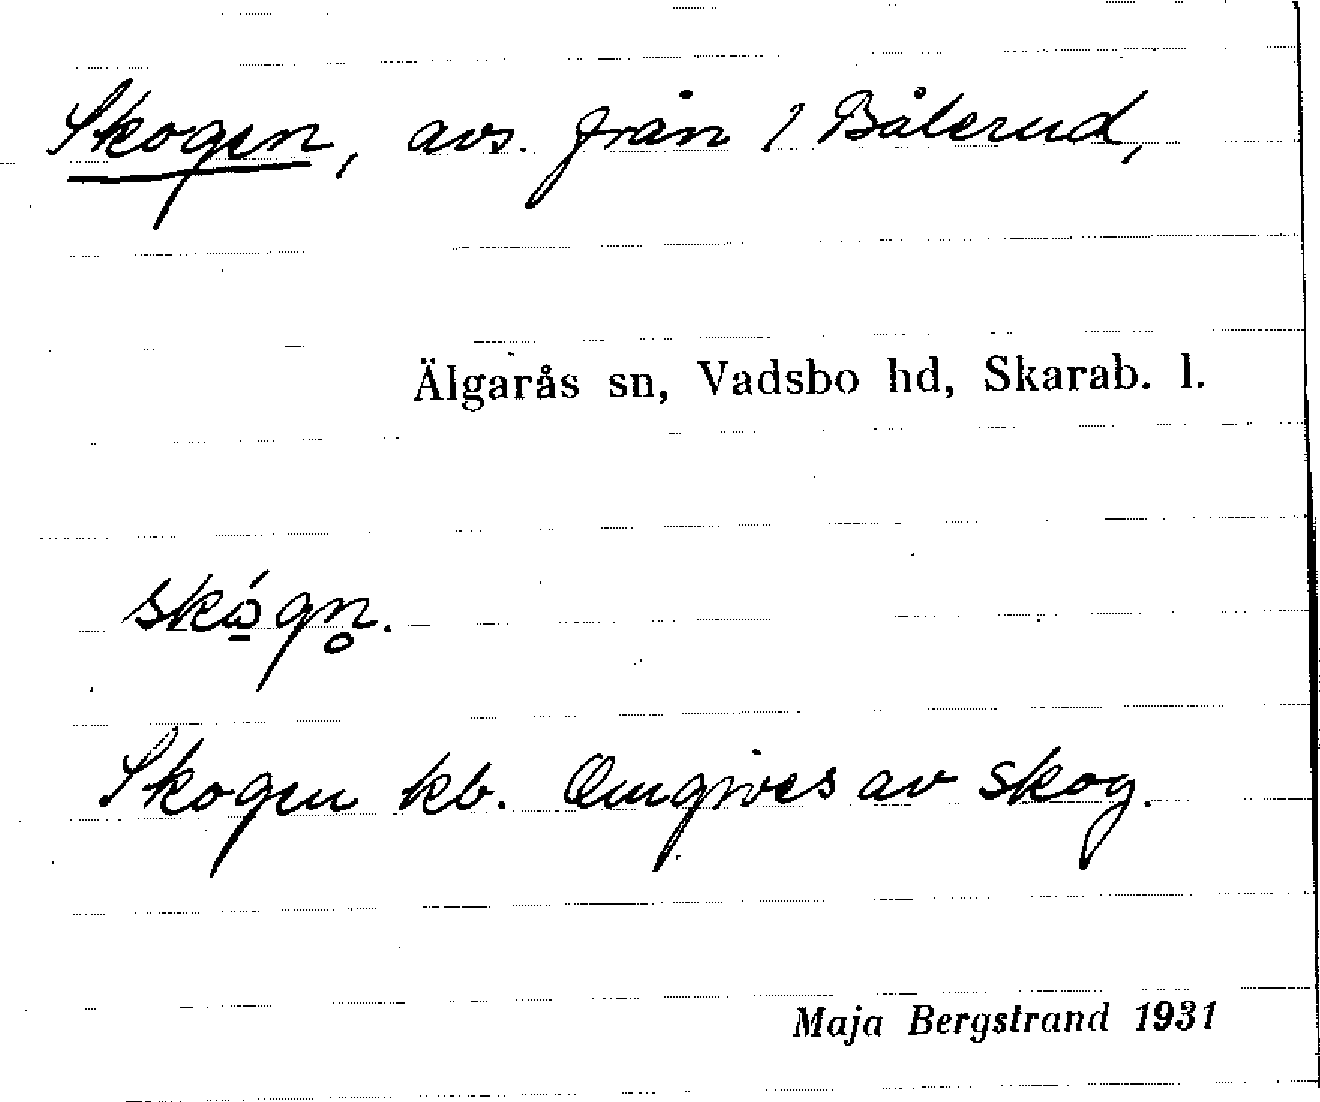 Skogen, avs. från 1 Bålerud,
Älgarås sn, Vadsbo hd, Skarab. l.
skó̲gn̥.
Skogen kb. Omgives av skog.
Maja Bergstrand 1931